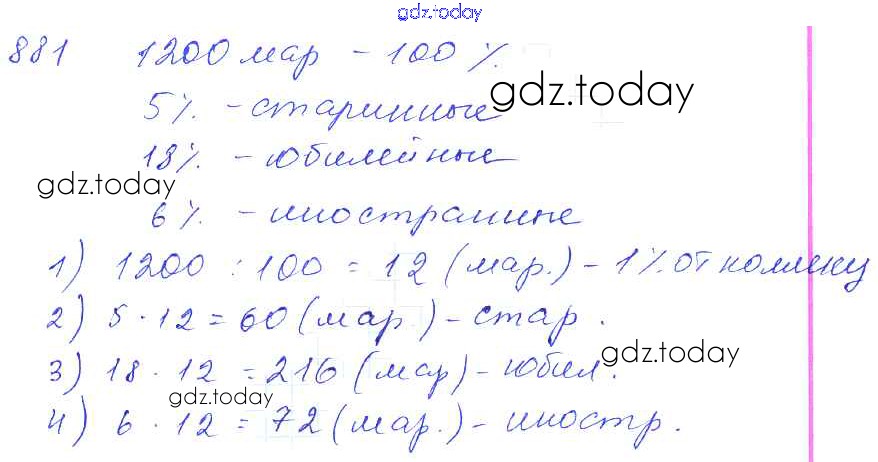 gdz.today
881 1200 мар – 100 %.
gdz.today
5% – старинные
18% – юбилейные
gdz.today
6% – иностранные
1) 1200 : 100 = 12 (мар.) – 1% от коллекц
2) 5 · 12 = 60 (мар.) – стар.
gdz.today
3) 18 · 12 = 216 (мар) – юбил.
gdz.today
4) 6 · 12 = 72 (мар.) – иностр.